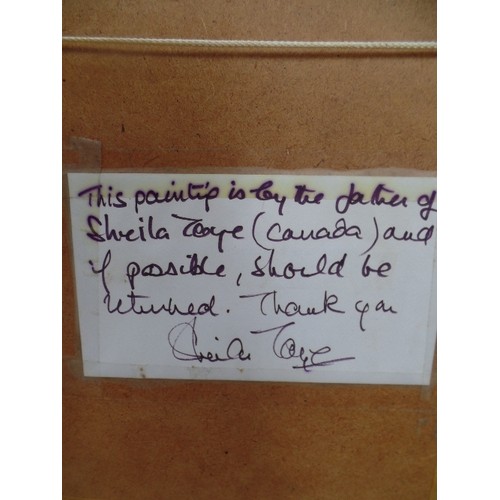 This painting is by the father of
Sheila Toye (Canada) and
if possible, should be
returned. Thank you
Sheila Toye